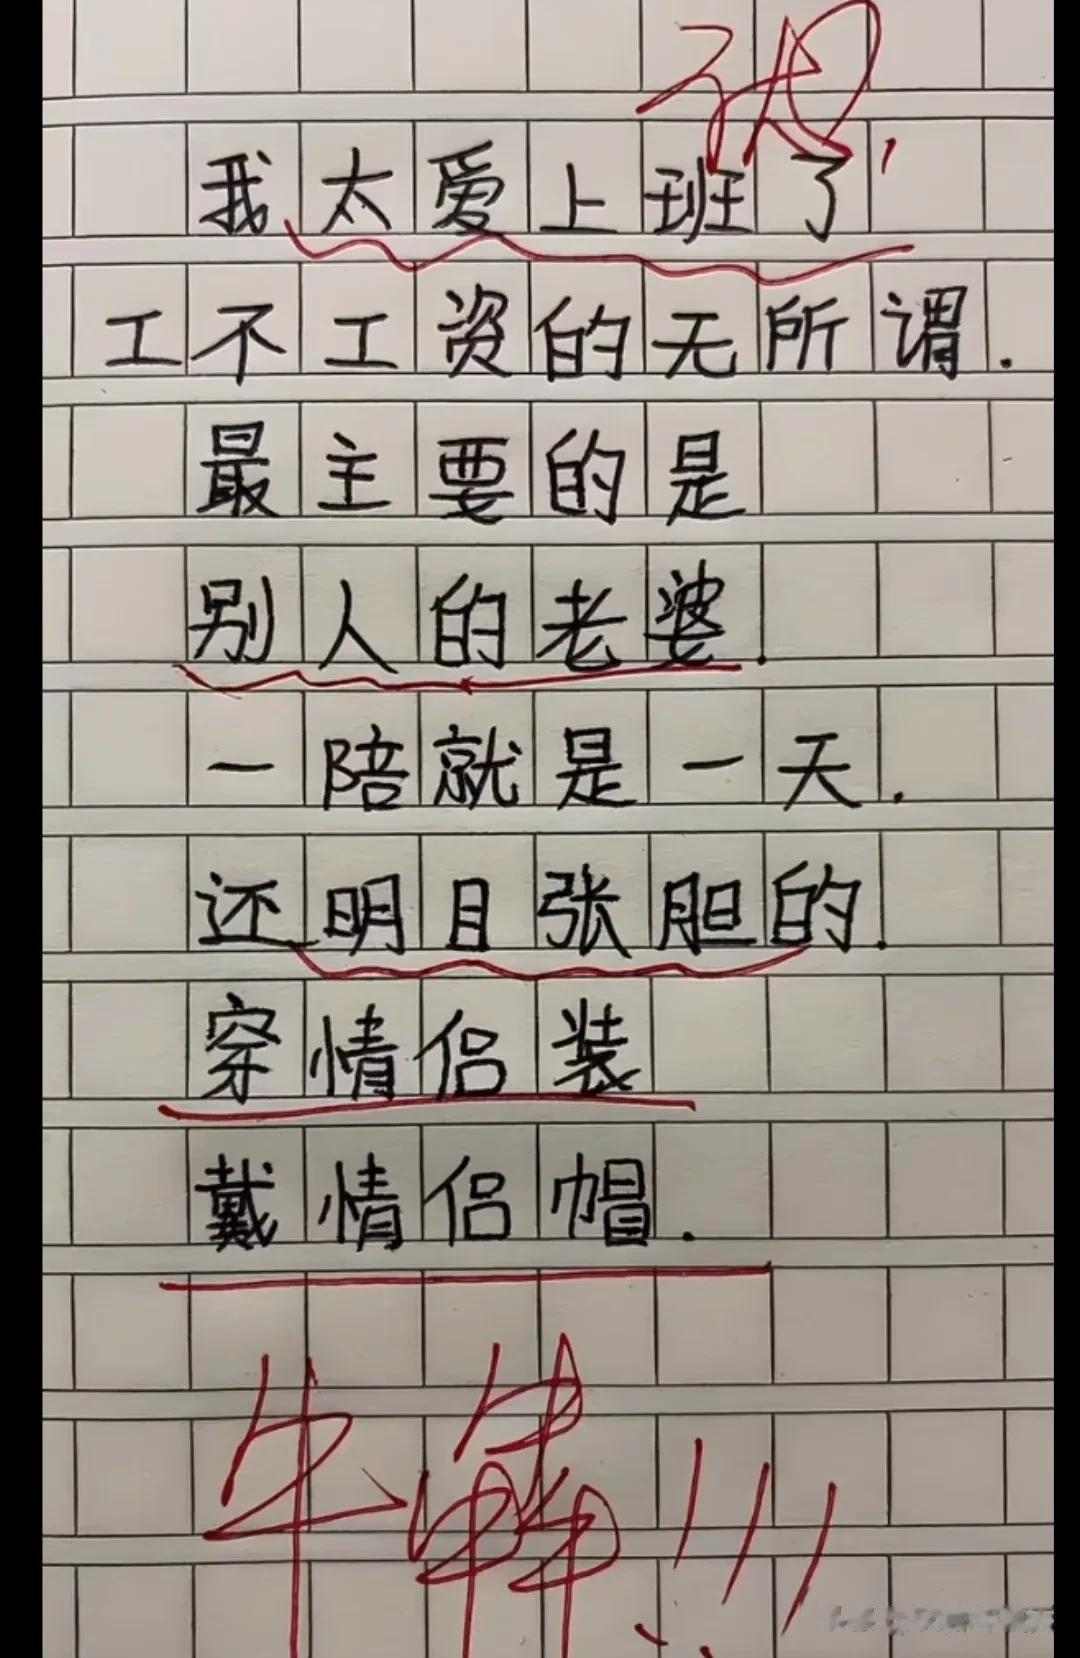 我太爱上班了
工不工资的无所谓.
最主要的是
别人的老婆.
一陪就是一天.
还明目张胆的.
穿情侣装
戴情侣帽.
牛犇!!!